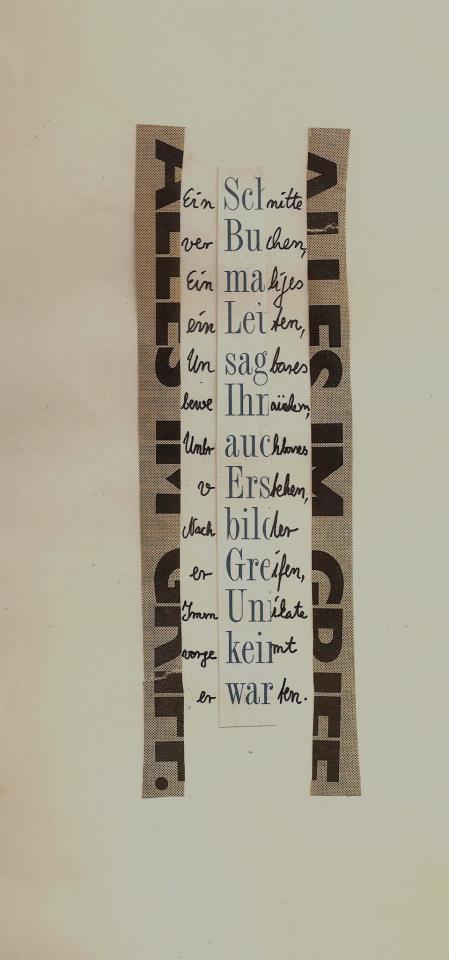 ALLES IM GRIFF.
Ein Schnitte
ver Buchen,
Ein maliges
ein Leiten,
Un sagbares
bewe Ihräuchern,
Unbr auchbares
v Erstehen,
Nach bilder
er Greifen,
Imm Unikate
vorge keimt
er warten.
ALLES IM GRIFF